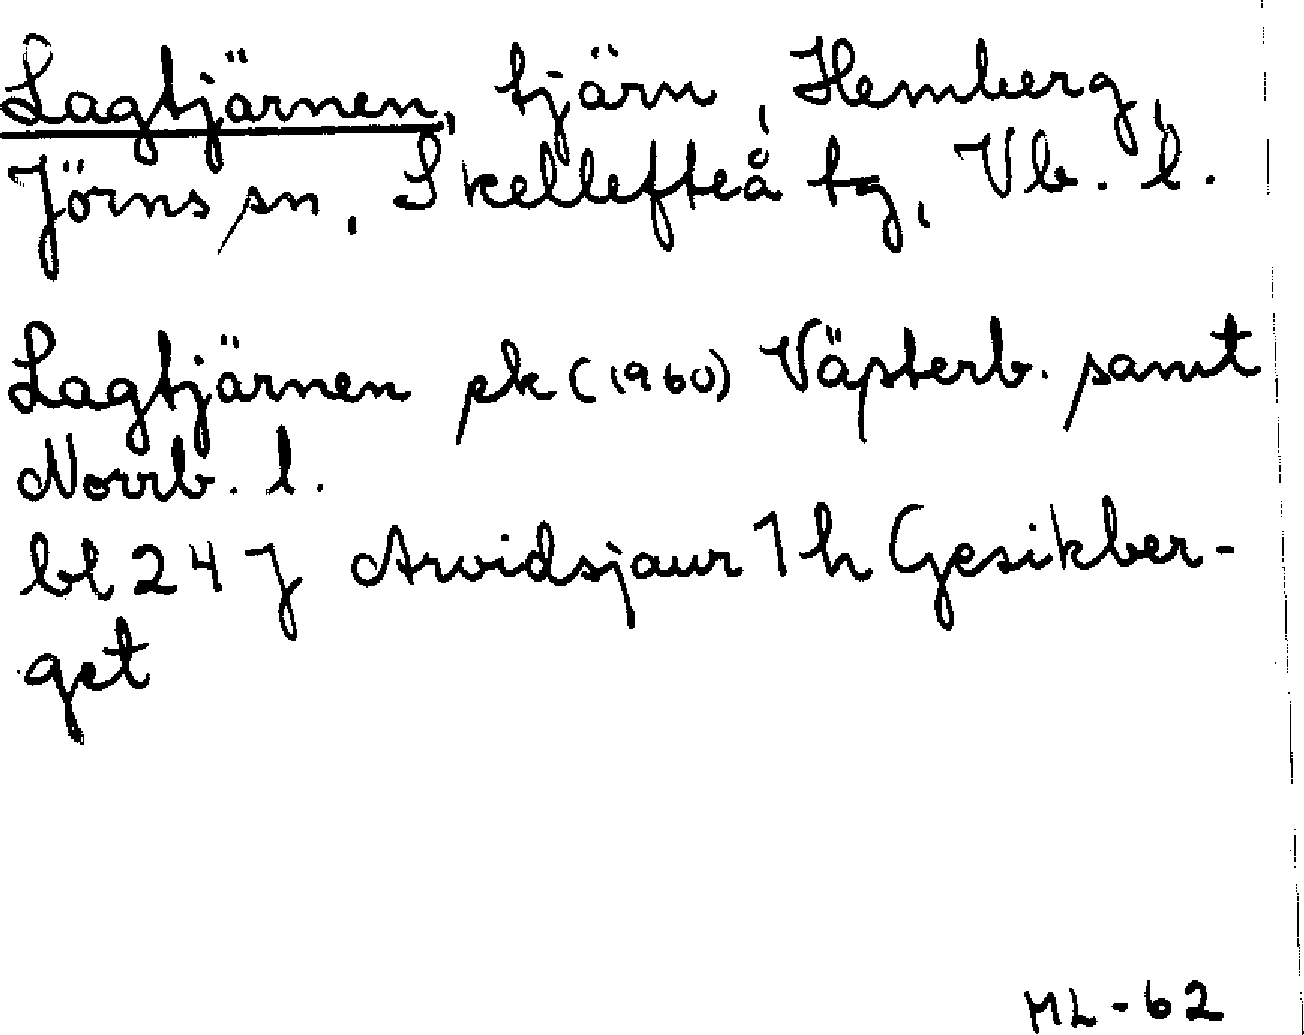 Lagtjärnen, tjärn, Hemberg,
Jörns sn, Skellefteå tg, Vb. l.
Lagtjärnen ek (1960) Västerb. samt
Norrb. l.
bl 24 J Arvidsjaur 1 h Gesikber-
get
ML-62